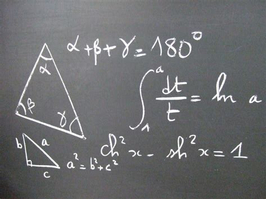 α+β+γ=180°
α
∫₁ᵃ dt/t = ln a
β
γ
b a
c
a²=b²+c²
ch²x - sh²x = 1